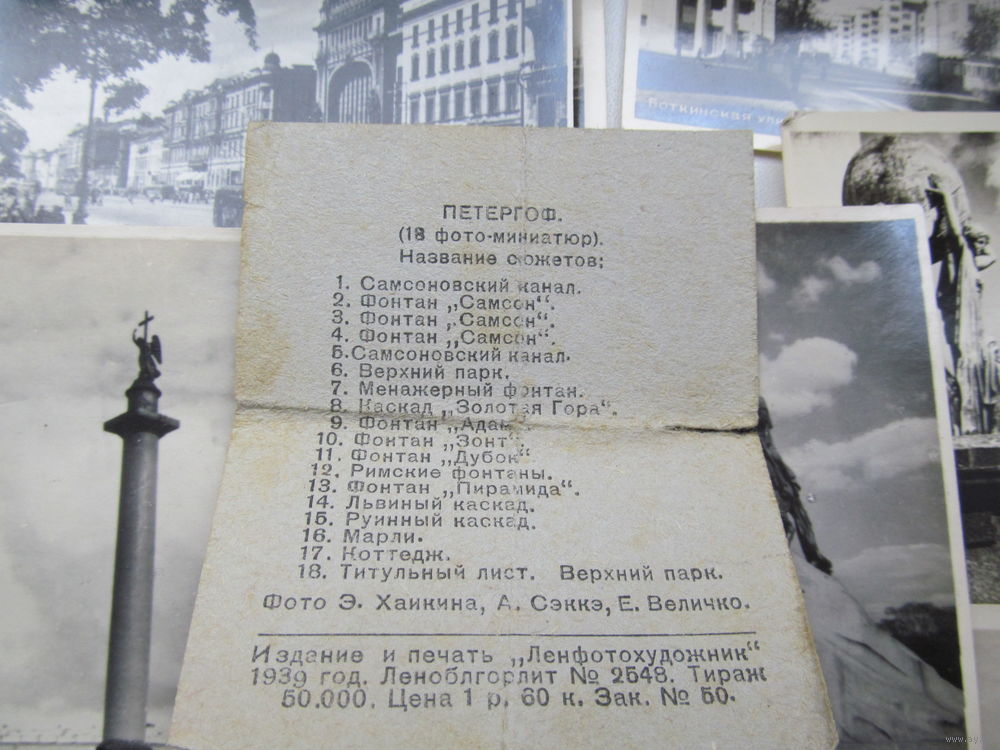 Боткинская ули
ПЕТЕРГОФ.
(18 фото-миниатюр).
Название сюжетов:
1. Самсоновский канал.
2. Фонтан „Самсон“.
3. Фонтан „Самсон“.
4. Фонтан „Самсон“.
5. Самсоновский канал.
6. Верхний парк.
7. Менажерный фонтан.
8. Каскад „Золотая Гора“.
9. Фонтан „Адам“.
10. Фонтан „Зонт“.
11. Фонтан „Дубок“
12. Римские фонтаны.
13. Фонтан „Пирамида“.
14. Львиный каскад.
15. Руинный каскад.
16. Марли.
17. Коттедж.
18. Титульный лист. Верхний парк.
Фото Э. Хаикина, А. Сэккэ, Е. Величко.
Издание и печать „Ленфотохудожник“
1939 год. Леноблгорлит № 2548. Тираж
50.000. Цена 1 р. 60 к. Зак. № 50.